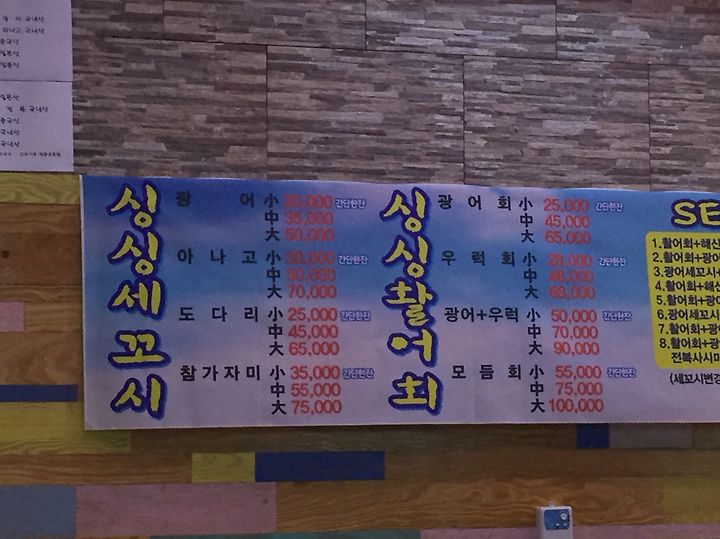 광 어 국내산
아나고 국내산
중국산
일본산
일본산
일본산
전 복 국내산
중국산
국내산
국내산
싱싱세꼬시
광 어 小 20,000 간단한잔
中 35,000
大 50,000
아 나 고 小 30,000 간단한잔
中 50,000
大 70,000
도 다 리 小 25,000 간단한잔
中 45,000
大 65,000
참 가 자 미 小 35,000 간단한잔
中 55,000
大 75,000
싱싱활어회
광 어 회 小 25,000 간단한잔
中 45,000
大 65,000
우 럭 회 小 28,000 간단한잔
中 48,000
大 68,000
광어+우럭 小 50,000 간단한잔
中 70,000
大 90,000
모 듬 회 小 55,000 간단한잔
中 75,000
大 100,000
SE
1.활어회+해산
2.활어회+광어
3.광어세꼬시
4.활어회+해산
5.활어회+광어
6.광어세꼬시
7.활어회+광어
8.활어회+광
전복사시미
(세꼬시변경